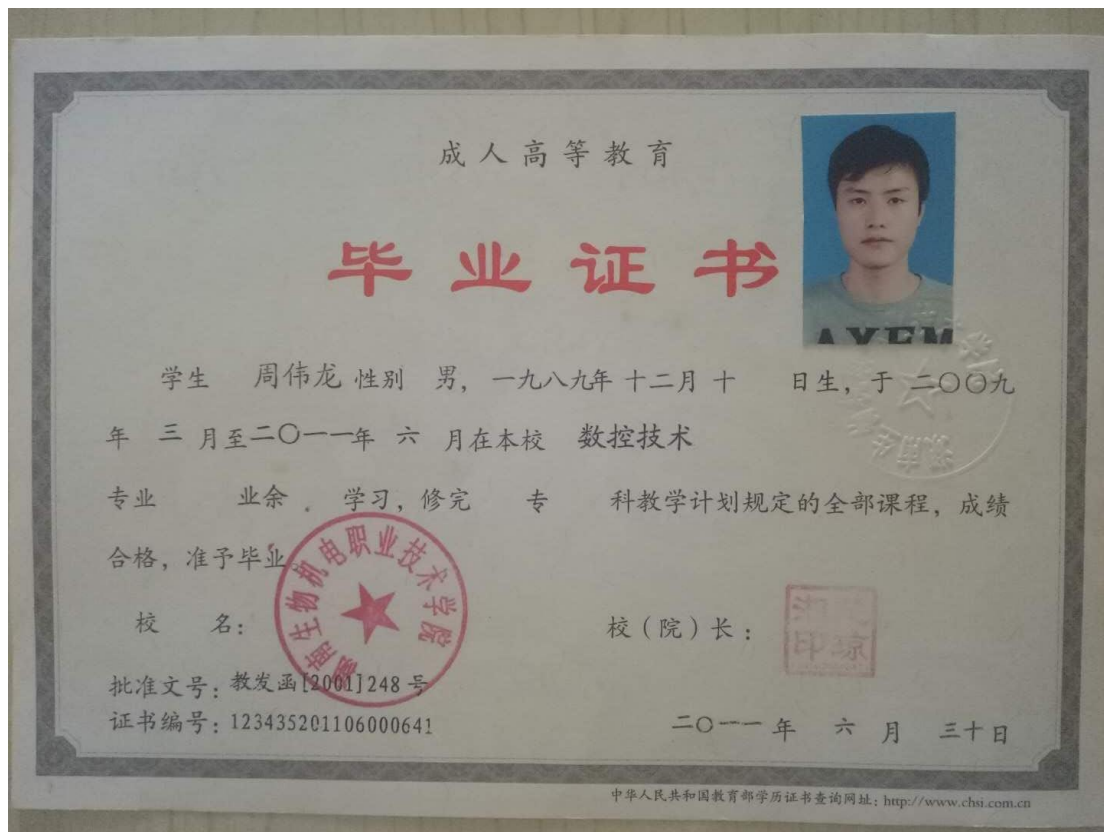 成人高等教育
毕业证书
AXEM
学生 周伟龙 性别 男，一九八九年十二月十 日生，于二〇〇九
年 三 月至二〇一一年 六 月在本校 数控技术
专业 业余 学习，修完 专 科教学计划规定的全部课程，成绩
合格，准予毕业
湖南生物机电职业技术学院
校 名：
校（院）长：
湘
印琼
批准文号：教发函[2001]248号
证书编号：123435201106000641
二〇一一年 六 月 三十日
中华人民共和国教育部学历证书查询网址：http://www.chsi.com.cn